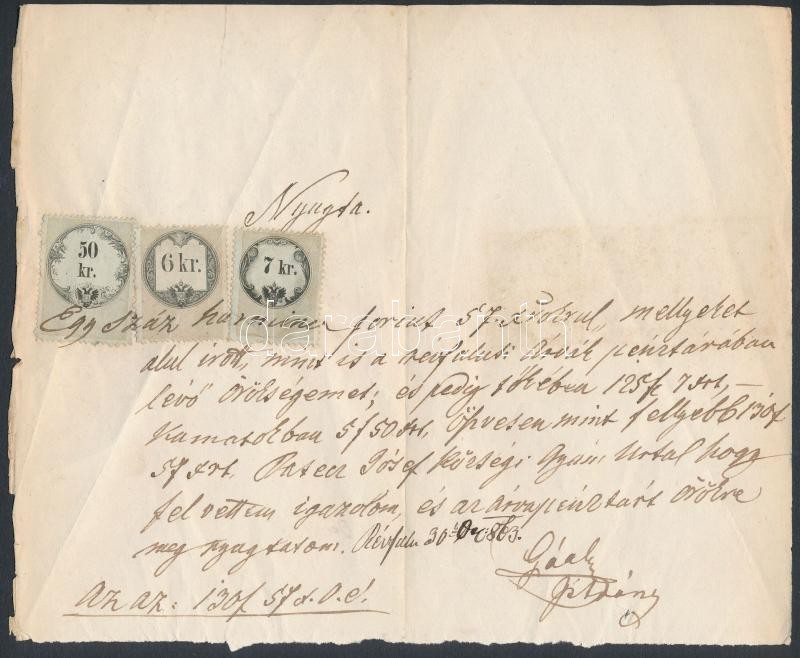 Nyugta.
50 kr.
6 kr.
7 kr.
Egy száz harmincz forint 57. xrokrul, mellyeket
alul irott, mint is a révfalusi Árvák pénztárában
lévő örökségemet; és pedig tőkében 125f 7xrt, –
Kamatokban 5f 50xrt. öszvesen mint fellyebb 130f
57xrt. József Községi Gyám Urtal hogy
fel vettem igazolom, és az árvapénztárt örökre
meg nyugtatom. Révfalu 30
Az az: 130f 57x. O. é!
Gáal
darabanth.com